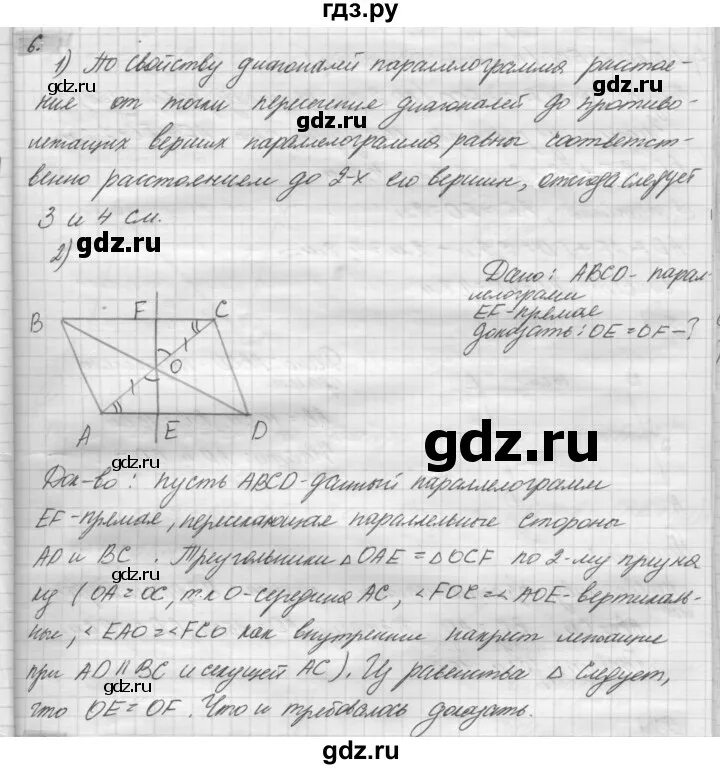 гдз.ру
6.
1) По свойству диагоналей параллелограмма расстоя-
ние от точки пересечения диагоналей до противо-
лежащих вершин параллелограмма равны соответст-
венно расстоянием до 2-х его вершин, отсюда следует
3 и 4 см.
2)
gdz.ru
gdz.ru
gdz.ru
Дано: ABCD- парал-
лелограмм
EF-прямая
доказать: OE=OF-?
B F C
O
A E D
gdz.ru
Док-во: пусть ABCD-данный параллелограмм
EF-прямая, пересекающая параллельные стороны
AD и BC. Треугольники △OAE=△OCF по 2-му призна
ку (OA=OC, т.к O-середина AC, ∠FOC=∠AOE-вертикаль-
ные, ∠EAO=∠FCO как внутренние накрест лежащие
при AD∥BC и секущей AC). Из равенства △ следует,
что OE=OF. Что и требовалось доказать.
gdz.ru
gdz.ru
gdz.ru
гдз.ру